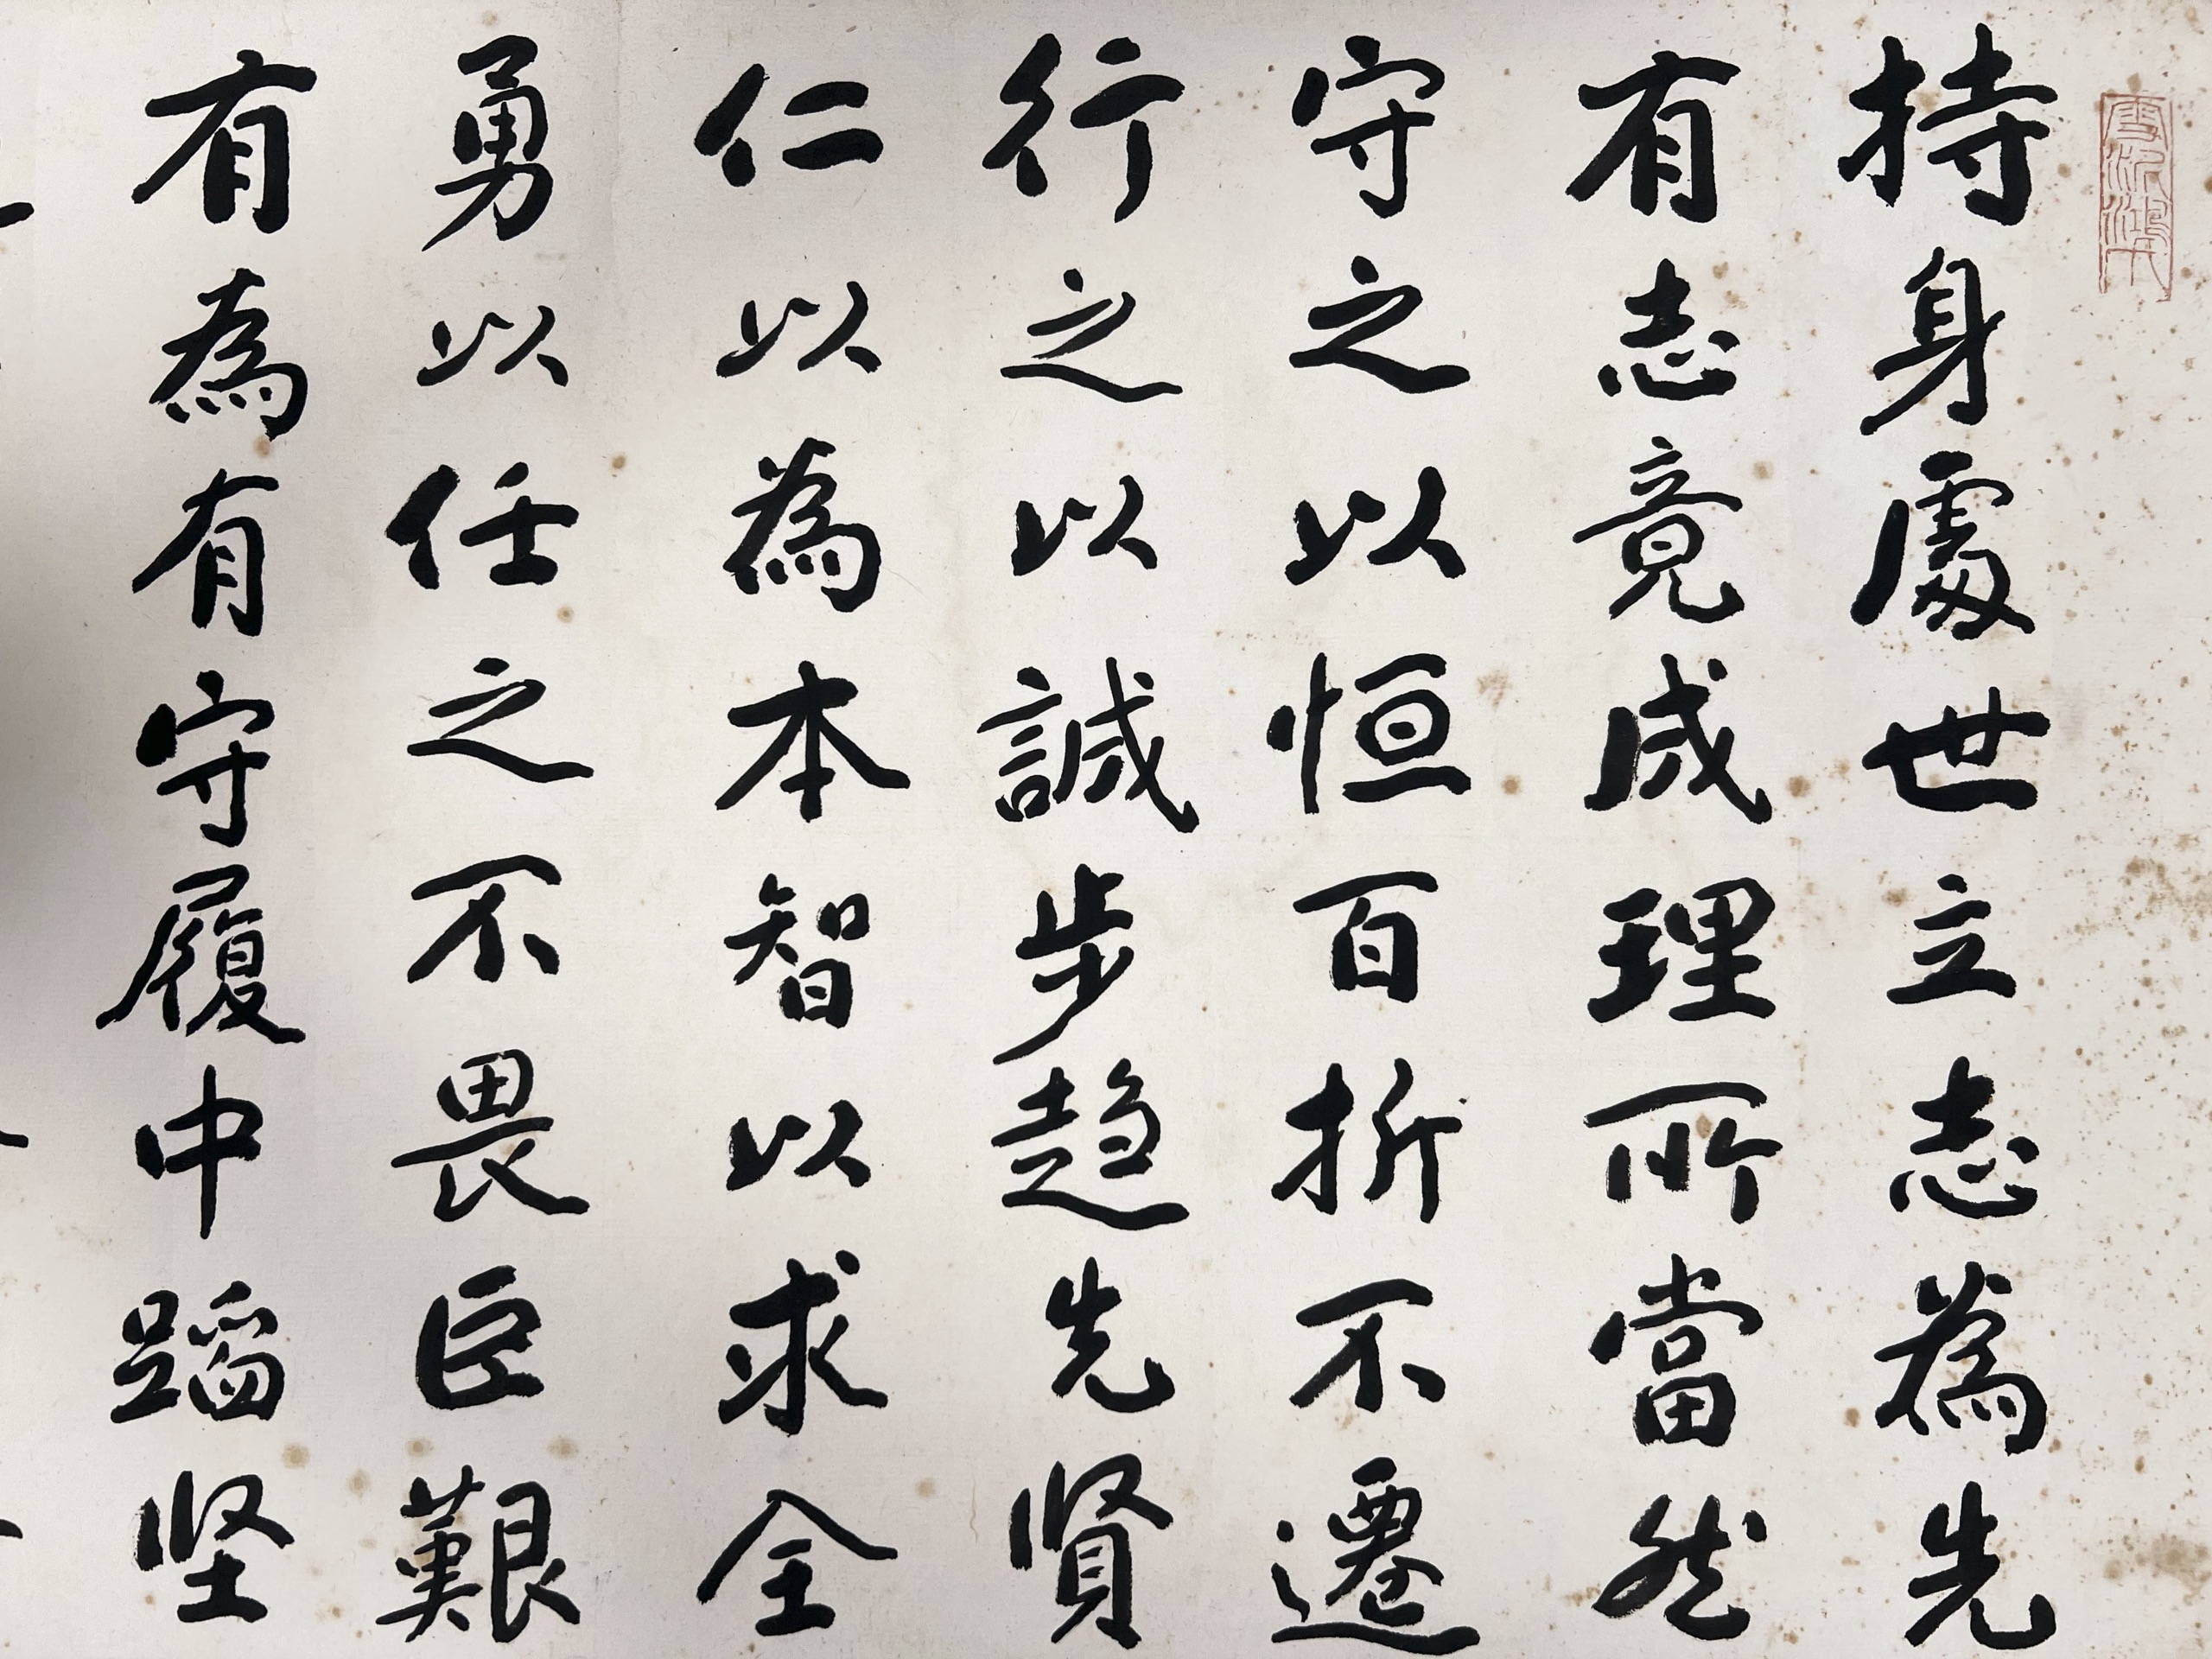 持身處世立志為先
有志竟成理所當然
守之以恒百折不遷
行之以誠步趨先賢
仁以為本智以求全
勇以任之不畏巨艱
有為有守履中蹈坚